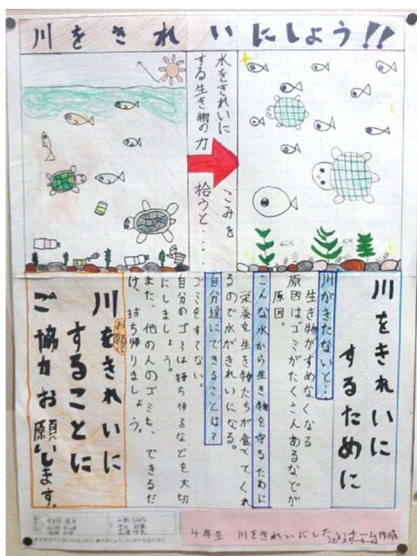 川をきれいにしよう!!
水をきれいに
する生き物の力
ごみを
拾うと・・・
川をきれいに
するために
川がきたないと…
生き物がすめなくなる
原因はゴミがたくさんあるなどが
原因。
こんな水から生き物を守るために
栄養を生き物たちが食べてくれ
るので水がきれいになる。
自分達にできることは?
ゴミをすてない。
自分のゴミは持ち帰るなどを大切
にしましょう。
また、他の人のゴミも、できるだ
け、持ち帰りましょう。
お願い
川をきれいに
することに
ご協力お願いします。
4年生 川をきれいにした
チーム作成